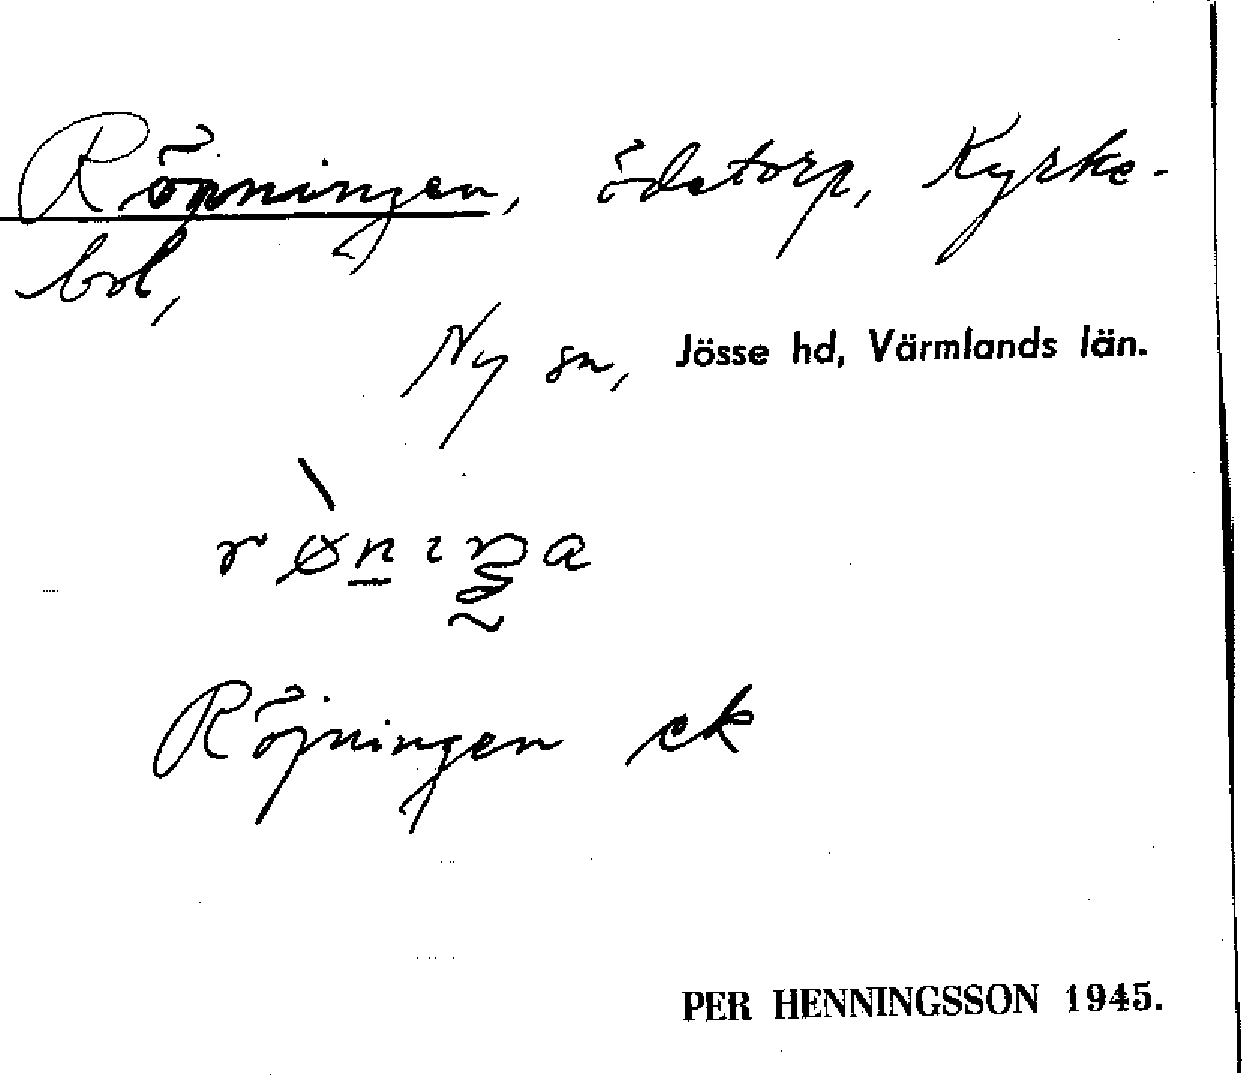 Röjningen, ödetorp, Kyrke-
bol,
Ny sn, Jösse hd, Värmlands län.
Röjningen ek
PER HENNINGSSON 1945.